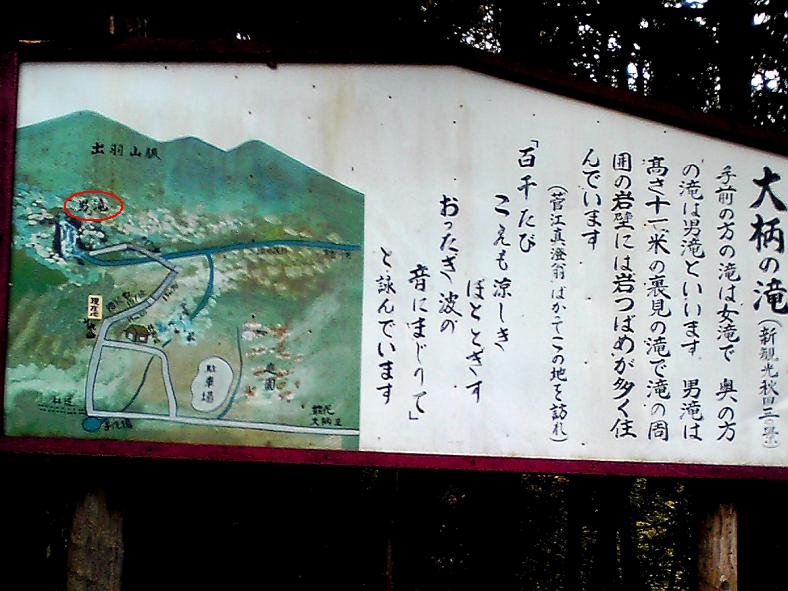 大柄の滝(新観光秋田三〇景)
手前の方の滝は女滝で 奥の方
の滝は男滝といいます 男滝は
高さ十一米の裏見の滝で滝の周
囲の岩壁には岩つばめが多く住
んでいます
(菅江真澄翁はかてこの地を訪れ)
「百千たび
こえも涼しき
ほととぎす
おったぎ波の
音にまじりて」
と詠んでいます
出羽山脈
男滝
現在地
駐車場
庭園
林道
能代
大柄